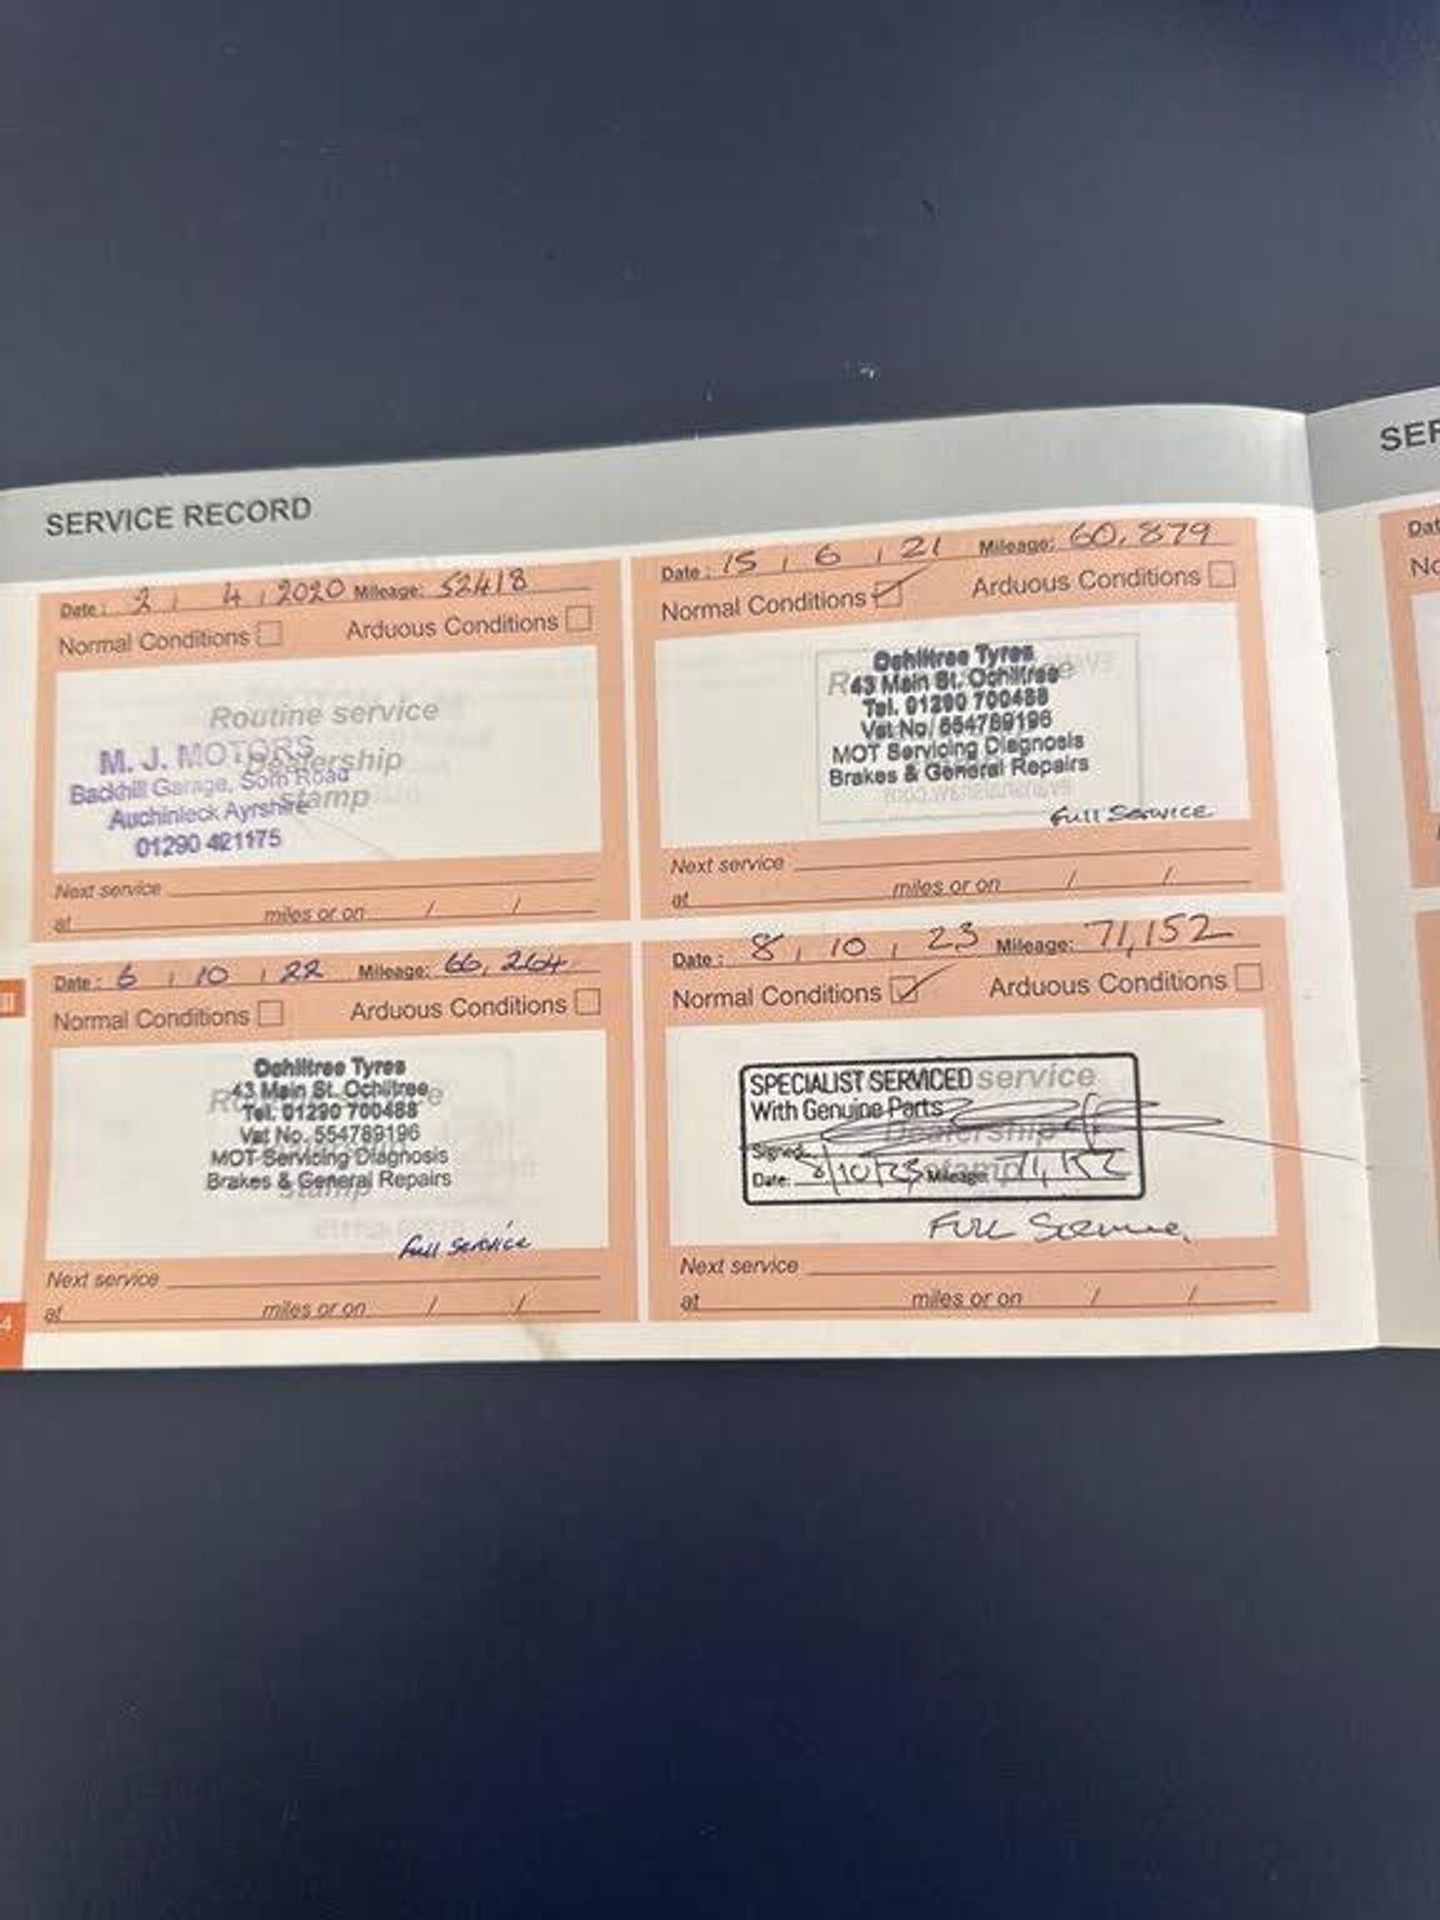 SERVICE RECORD
Date: 2 / 4 / 2020 Mileage: 52418
Normal Conditions Arduous Conditions
Routine service
Dealership
stamp
M. J. MOTORS
Backhill Garage, Sorn Road
Auchinleck Ayrshire
01290 421175
Next service
at miles or on / /
Date: 15 / 6 / 21 Mileage: 60,879
Normal Conditions Arduous Conditions
Ochiltree Tyres
43 Main St. Ochiltree
Tel. 01290 700488
Vat No. 554789196
MOT Servicing Diagnosis
Brakes & General Repairs
Full Service
Next service
at miles or on / /
Date: 6 / 10 / 22 Mileage: 66,264
Normal Conditions Arduous Conditions
Ochiltree Tyres
43 Main St. Ochiltree
Tel. 01290 700488
Vat No. 554789196
MOT Servicing Diagnosis
Brakes & General Repairs
stamp
Full Service
Next service
at miles or on / /
Date: 8 / 10 / 23 Mileage: 71,152
Normal Conditions Arduous Conditions
SPECIALIST SERVICED service
With Genuine Parts
Dealership
Signed
Date: 8/10/23 stamp Mileage: 71,152
Full Service
Next service
at miles or on / /
SER
Dat
No
4